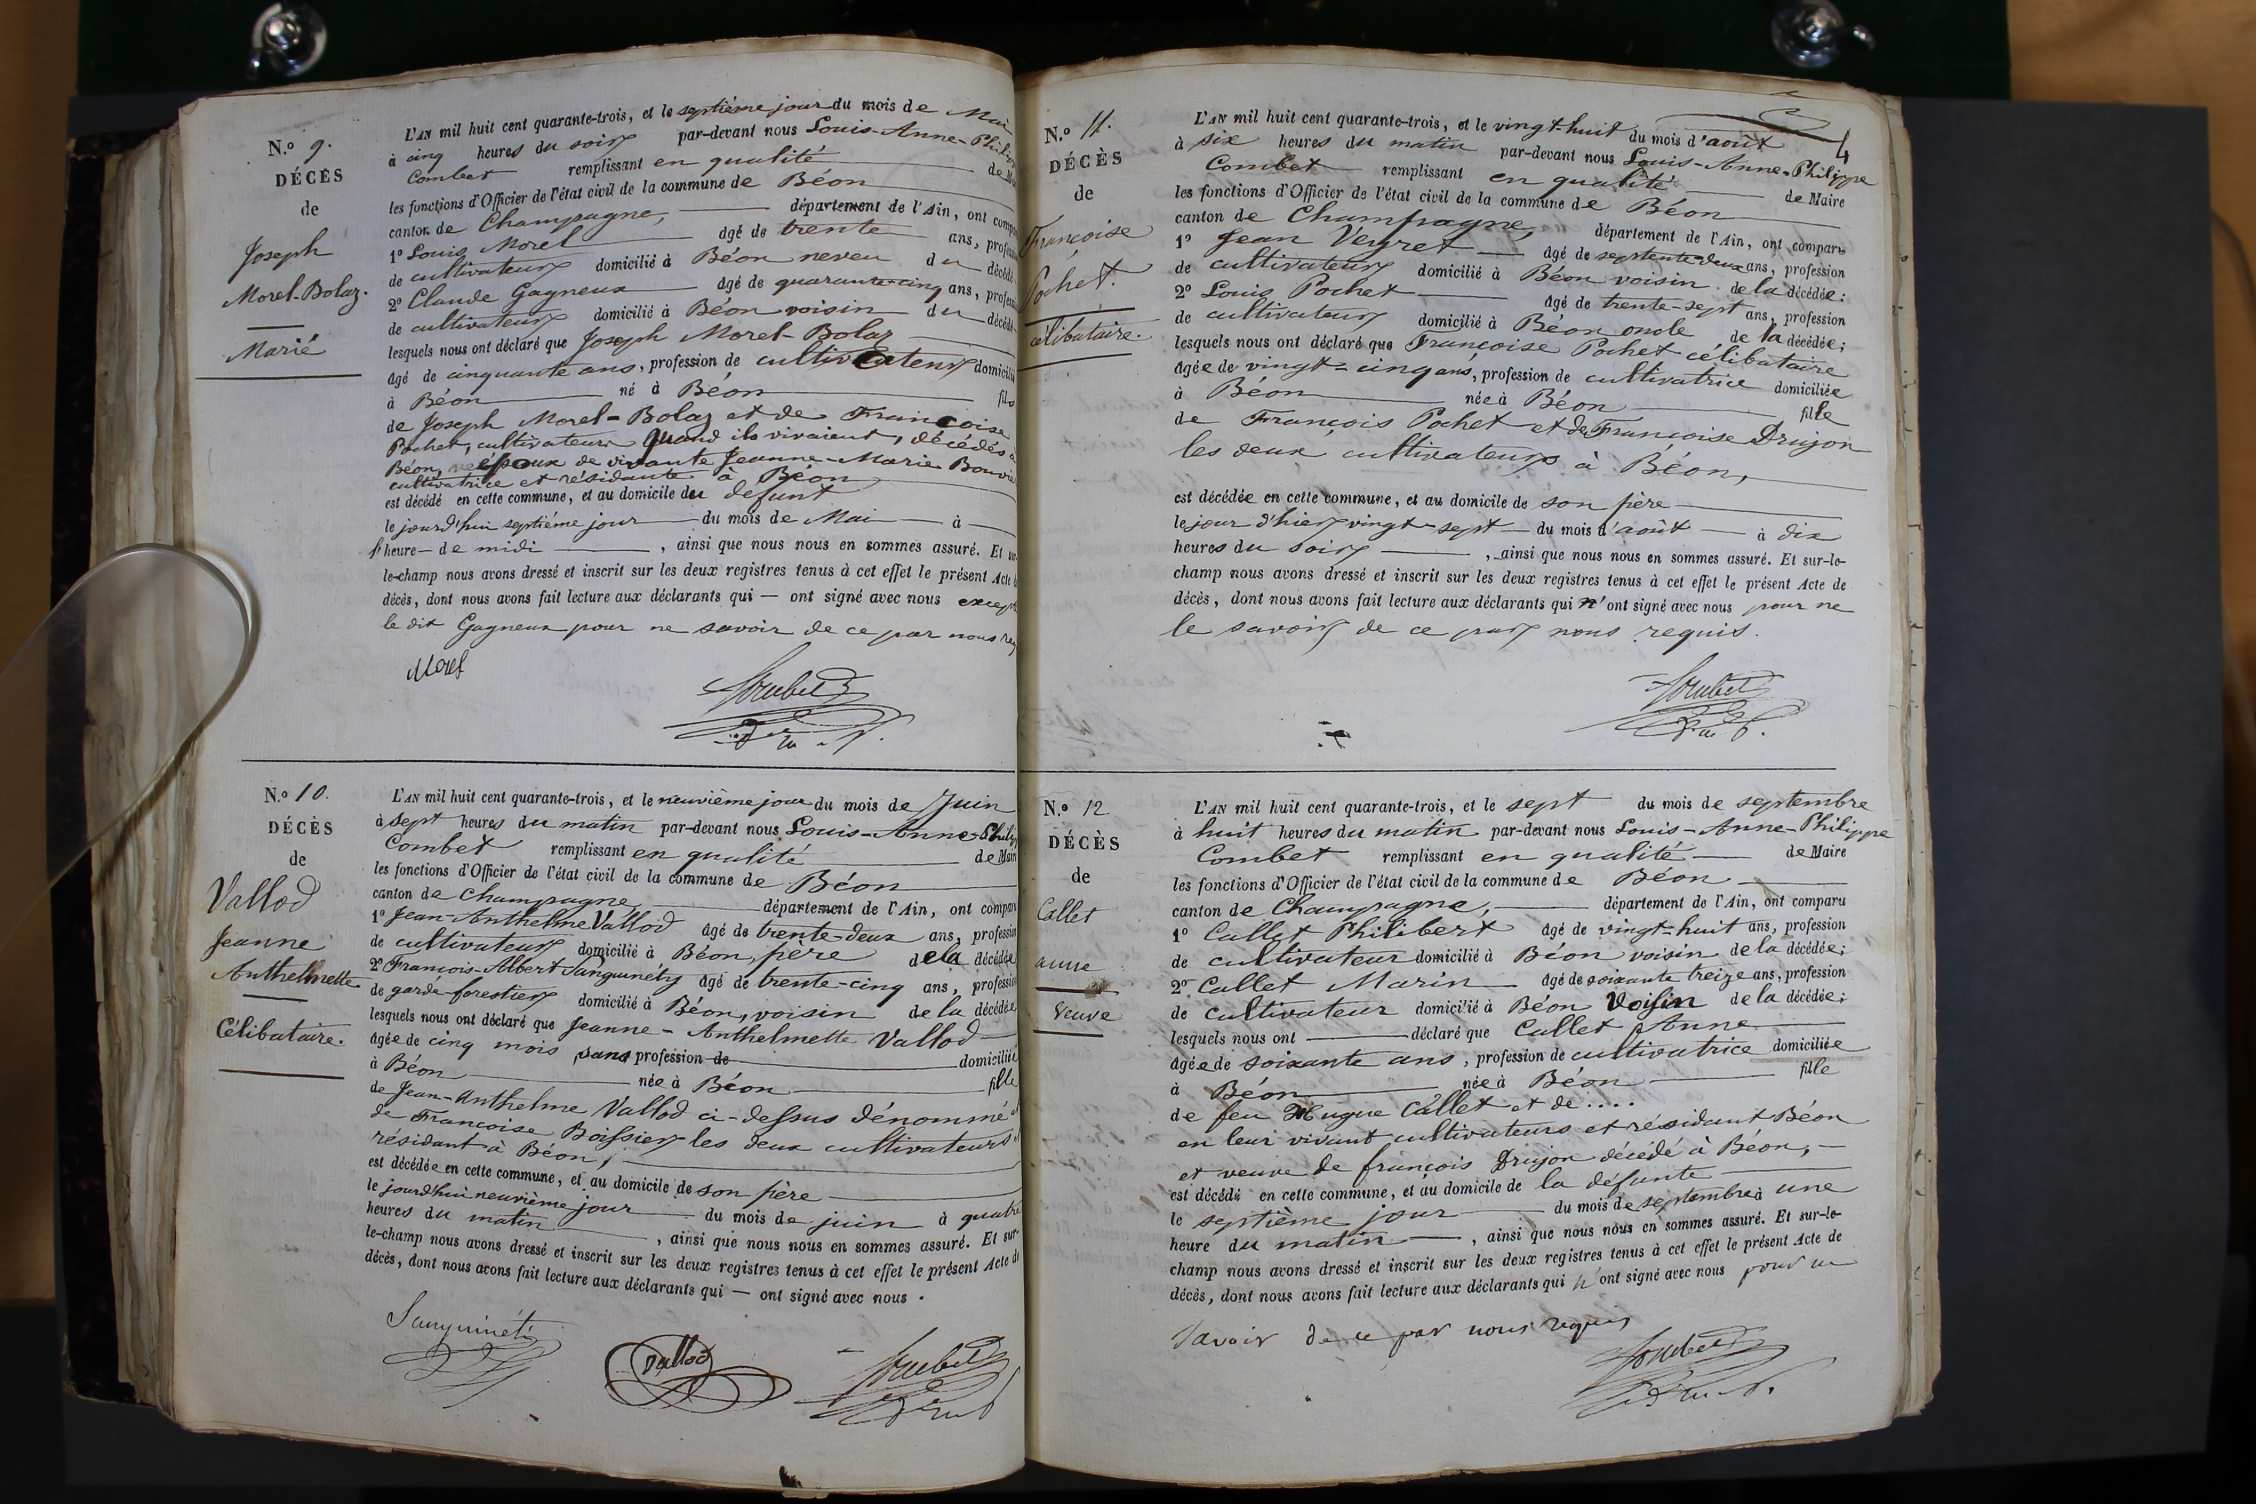 N.º 9.
DÉCÈS
de
Joseph
Morel-Bolaz.
Marié
L'AN mil huit cent quarante-trois, et le septième jour du mois de Mai
à cinq heures du soir par-devant nous Louis-Anne-Philippe
Combet remplissant en qualité de Maire
les fonctions d'Officier de l'état civil de la commune de Béon
canton de Champagne, département de l'Ain, ont comparu
1º Louis Morel âgé de trente ans, profession
de cultivateur domicilié à Béon neveu du décédé
2º Claude Gagneux âgé de quarante-cinq ans, profession
de cultivateur domicilié à Béon voisin du décédé
lesquels nous ont déclaré que Joseph Morel-Bolaz
âgé de cinquante ans, profession de cultivateur domicilié
à Béon né à Béon fils
de Joseph Morel-Bolaz et de Francoise
Pochet, cultivateurs quand ils vivaient, décédés à
Béon, époux de vivante Jeanne-Marie Bouvier
cultivatrice et résidante à Béon
est décédé en cette commune, et au domicile du defunt
le jourd'hui septiéme jour du mois de Mai à
heure de midi, ainsi que nous nous en sommes assuré. Et sur-
le-champ nous avons dressé et inscrit sur les deux registres tenus à cet effet le présent Acte de
décès, dont nous avons fait lecture aux déclarants qui — ont signé avec nous excepté
le dit Gagneux pour ne savoir de ce par nous req
Morel
N.º 10.
DÉCÈS
de
Vallod
Jeanne
Anthelmette
Célibataire.
L'AN mil huit cent quarante-trois, et le neuvième jour du mois de Juin
à sept heures du matin par-devant nous Louis-Anne-Philippe
Combet remplissant en qualité de Maire
les fonctions d'Officier de l'état civil de la commune de Béon
canton de Champagne département de l'Ain, ont comparu
1º Jean-Anthelme Vallod âgé de trente-deux ans, profession
de cultivateur domicilié à Béon, père de la décédée
2º François-Albert Sanguinéty âgé de trente-cinq ans, profession
de garde-forestier domicilié à Béon, voisin de la décédée
lesquels nous ont déclaré que Jeanne-Anthelmette Vallod
âgée de cinq mois sans profession de domiciliée
à Béon née à Béon fille
de Jean-Anthelme Vallod ci-dessus dénommé et
de Francoise Boissier les deux cultivateurs
résidant à Béon,
est décédée en cette commune, et au domicile de son père
le jourd'hui neuvième jour du mois de juin à quatre
heures du matin, ainsi que nous nous en sommes assuré. Et sur-
le-champ nous avons dressé et inscrit sur les deux registres tenus à cet effet le présent Acte de
décès, dont nous avons fait lecture aux déclarants qui — ont signé avec nous.
Sanguinéti
Vallod
4
N.º 11.
DÉCÈS
de
Françoise
Pochet.
célibataire.
L'AN mil huit cent quarante-trois, et le vingt-huit du mois d'août
à six heures du matin par-devant nous Louis-Anne-Philippe
Combet remplissant en qualité de Maire
les fonctions d'Officier de l'état civil de la commune de Béon
canton de Champagne, département de l'Ain, ont comparu
1º Jean Veyret âgé de septente-deux ans, profession
de cultivateur domicilié à Béon voisin de la décédée;
2º Louis Pochet âgé de trente-sept ans, profession
de cultivateur domicilié à Béon oncle de la décédée;
lesquels nous ont déclaré que Françoise Pochet célibataire
âgée de vingt-cinq ans, profession de cultivatrice domiciliée
à Béon née à Béon fille
de François Pochet et de Francoise Drujon
les deux cultivateurs à Béon,
est décédée en cette commune, et au domicile de son père
le jour d'hier vingt-sept du mois d'août à dix
heures du soir, ainsi que nous nous en sommes assuré. Et sur-le-
champ nous avons dressé et inscrit sur les deux registres tenus à cet effet le présent Acte de
décès, dont nous avons fait lecture aux déclarants qui n'ont signé avec nous pour ne
le savoir de ce par nous requis.
N.º 12
DÉCÈS
de
Callet
anne
Veuve
L'AN mil huit cent quarante-trois, et le sept du mois de septembre
à huit heures du matin par-devant nous Louis-Anne-Philippe
Combet remplissant en qualité de Maire
les fonctions d'Officier de l'état civil de la commune de Béon
canton de Champagne, département de l'Ain, ont comparu
1º Callet Philibert âgé de vingt-huit ans, profession
de cultivateur domicilié à Béon voisin de la décédée;
2º Callet Marin âgé de soixante treize ans, profession
de cultivateur domicilié à Béon Voisin de la décédée;
lesquels nous ont déclaré que Callet Anne
âgée de soixante ans, profession de cultivatrice domiciliée
à Béon née à Béon fille
de feu Hugue Callet et de ....
en leur vivant cultivateurs et résidant Béon
et veuve de françois Drujon décédé à Béon,
est décédé en cette commune, et au domicile de la défunte
le septième jour du mois de septembre à une
heure du matin, ainsi que nous nous en sommes assuré. Et sur-le-
champ nous avons dressé et inscrit sur les deux registres tenus à cet effet le présent Acte de
décès, dont nous avons fait lecture aux déclarants qui n'ont signé avec nous pour ne
savoir de ce par nous requis